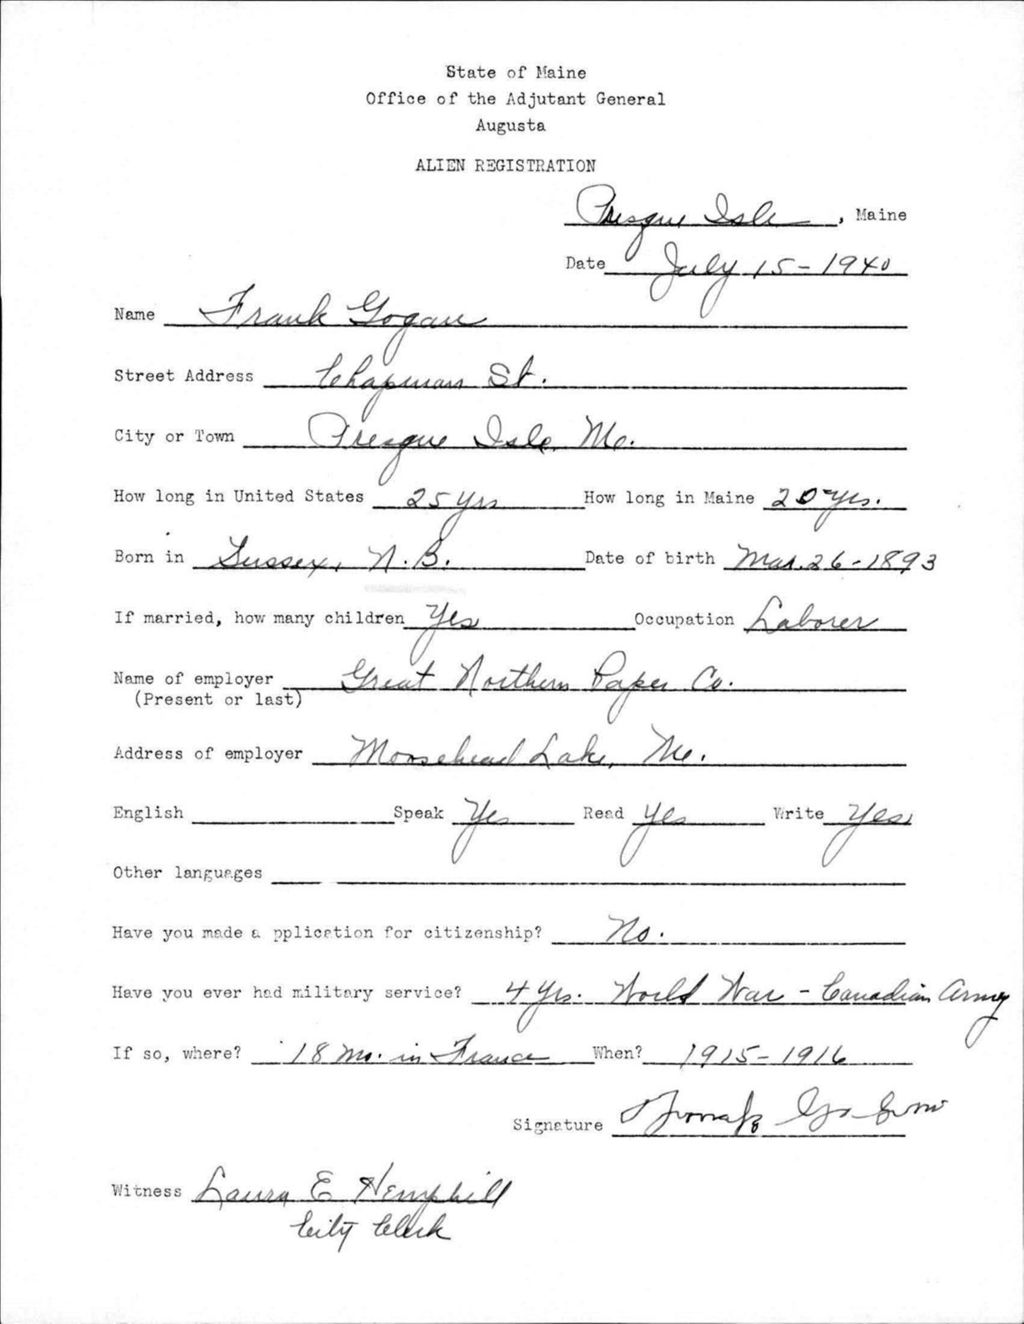 State of Maine
Office of the Adjutant General
Augusta
ALIEN REGISTRATION
Presque Isle, Maine
Date July 15-1940
Name Frank Gogan
Street Address Chapman St.
City or Town Presque Isle, Me.
How long in United States 25 yrs How long in Maine 20 yrs.
Born in Sussex, N.B. Date of birth Mar. 26-1893
If married, how many children Yes Occupation Laborer
Name of employer Great Northern Paper Co.
(Present or last)
Address of employer Moosehead Lake, Me.
English Speak Yes Read Yes Write Yes
Other languages
Have you made a pplication for citizenship? No.
Have you ever had military service? 4 yrs. World War - Canadian Army
If so, where? 18 mo. in France When? 1915-1916
Signature Frank Gogan
Witness Laura E Hemphill
City Clerk